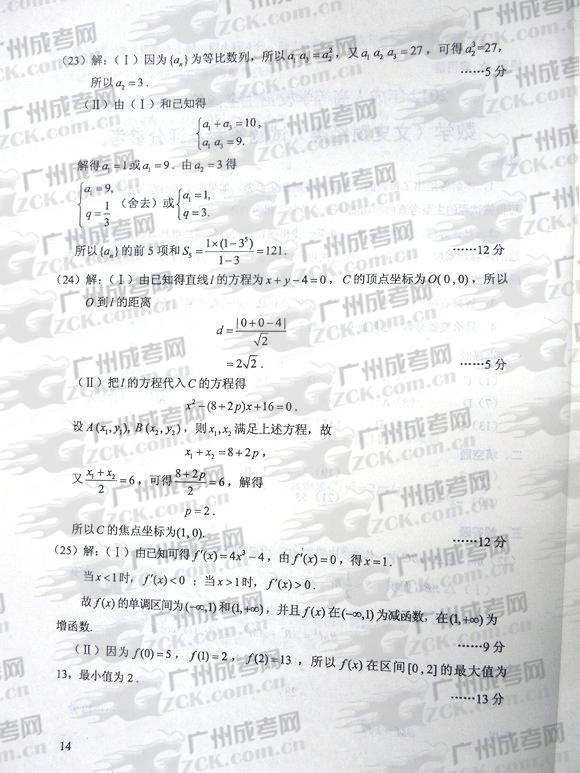 (23) 解:(Ⅰ) 因为{aₙ}为等比数列, 所以a₁a₃=a₂², 又a₁a₂a₃=27, 可得a₂³=27,
所以a₂=3. ……5分
(Ⅱ) 由(Ⅰ)和已知得
{a₁+a₃=10,
a₁a₃=9.
解得a₁=1或a₁=9. 由a₂=3得
{a₁=9, q=1/3 (舍去) 或{a₁=1, q=3.
所以{aₙ}的前5项和S₅=1×(1-3⁵)/(1-3)=121. ……12分
(24) 解:(Ⅰ) 由已知得直线l的方程为x+y-4=0, C的顶点坐标为O(0,0), 所以
O到l的距离
d=|0+0-4|/√2
=2√2. ……5分
(Ⅱ) 把l的方程代入C的方程得
x²-(8+2p)x+16=0.
设A(x₁,y₁), B(x₂,y₂), 则x₁,x₂满足上述方程, 故
x₁+x₂=8+2p,
又(x₁+x₂)/2=6, 可得(8+2p)/2=6, 解得
p=2.
所以C的焦点坐标为(1,0). ……12分
(25) 解:(Ⅰ) 由已知可得f′(x)=4x³-4, 由f′(x)=0, 得x=1.
当x<1时, f′(x)<0; 当x>1时, f′(x)>0.
故f(x)的单调区间为(-∞,1)和(1,+∞), 并且f(x)在(-∞,1)为减函数, 在(1,+∞)为
增函数. ……9分
(Ⅱ) 因为f(0)=5, f(1)=2, f(2)=13, 所以f(x)在区间[0,2]的最大值为
13, 最小值为2. ……13分
14
广州成考网
GZCK.com.cn